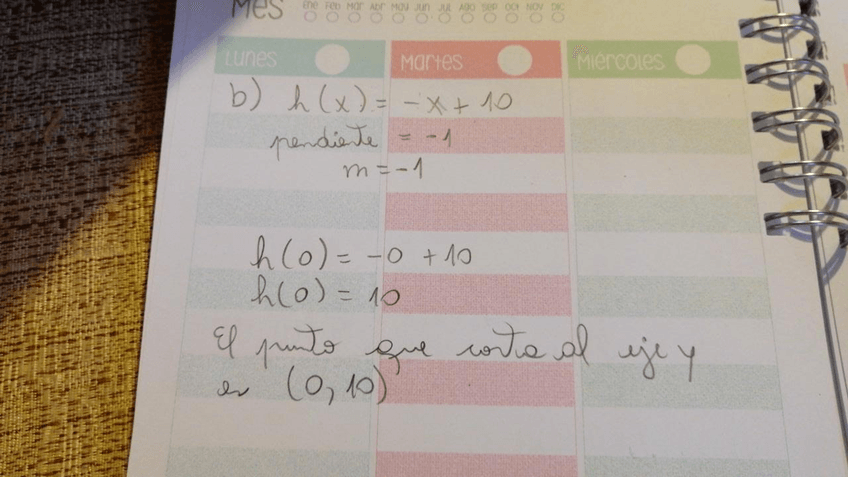 MES Ene Feb Mar Abr May Jun Jul Ago Sep Oct Nov Dic
Lunes Martes Miércoles
b) h(x) = -x + 10
pendiente = -1
m = -1
h(0) = -0 + 10
h(0) = 10
El punto que corta al eje y
es (0, 10)